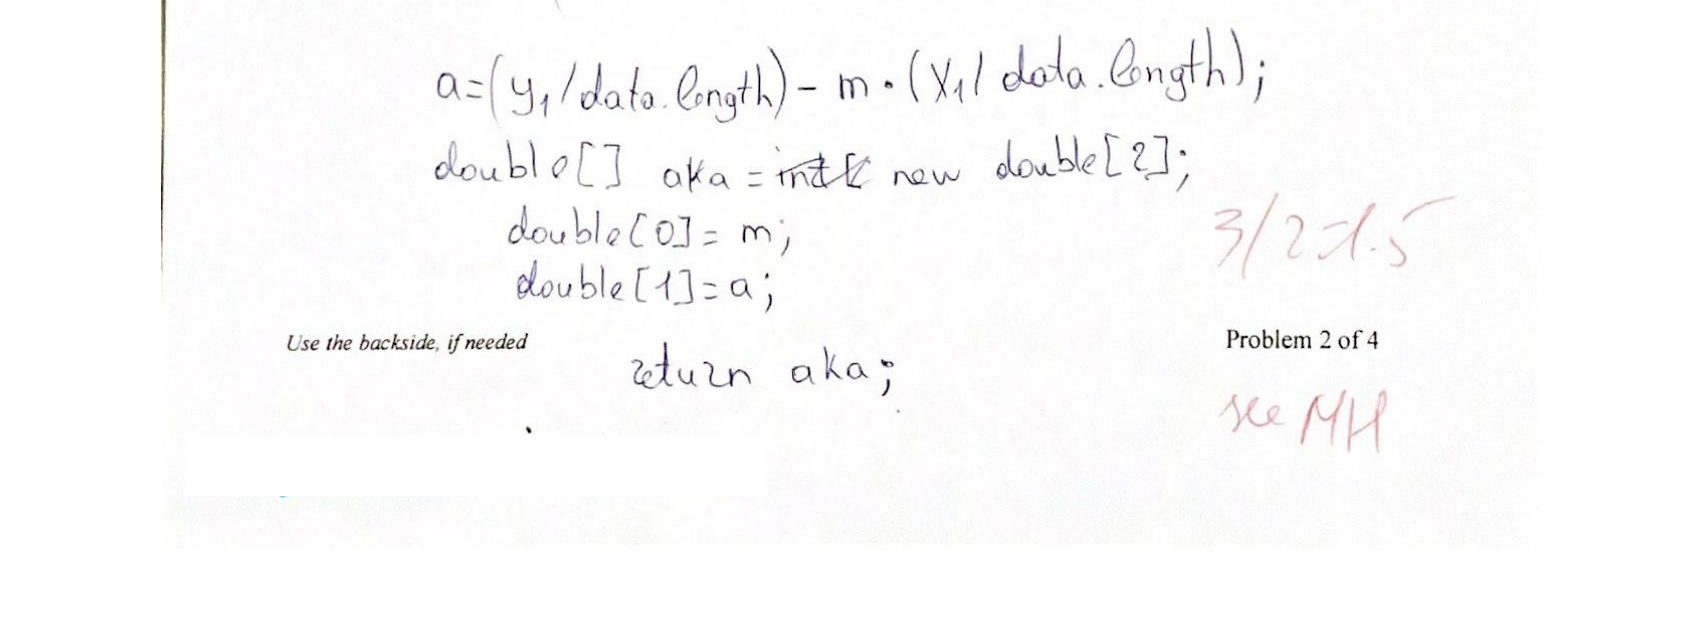 a=(y₁/data.length) - m·(x₁/data.length);
double[] aka = new double[2];
double[0] = m;
double[1] = a;
3/2=1.5
Use the backside, if needed
Problem 2 of 4
return aka;
see MH